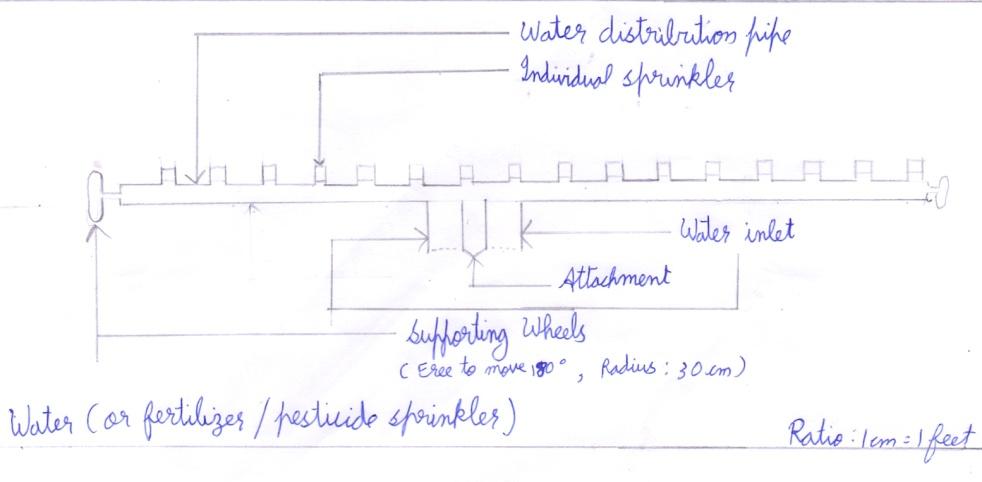 Water distribution pipe
Individual sprinkler
Water inlet
Attachment
Supporting Wheels
( Free to move 180°, Radius : 30 cm)
Water (or fertilizer / pesticide sprinkler)
Ratio : 1 cm = 1 feet